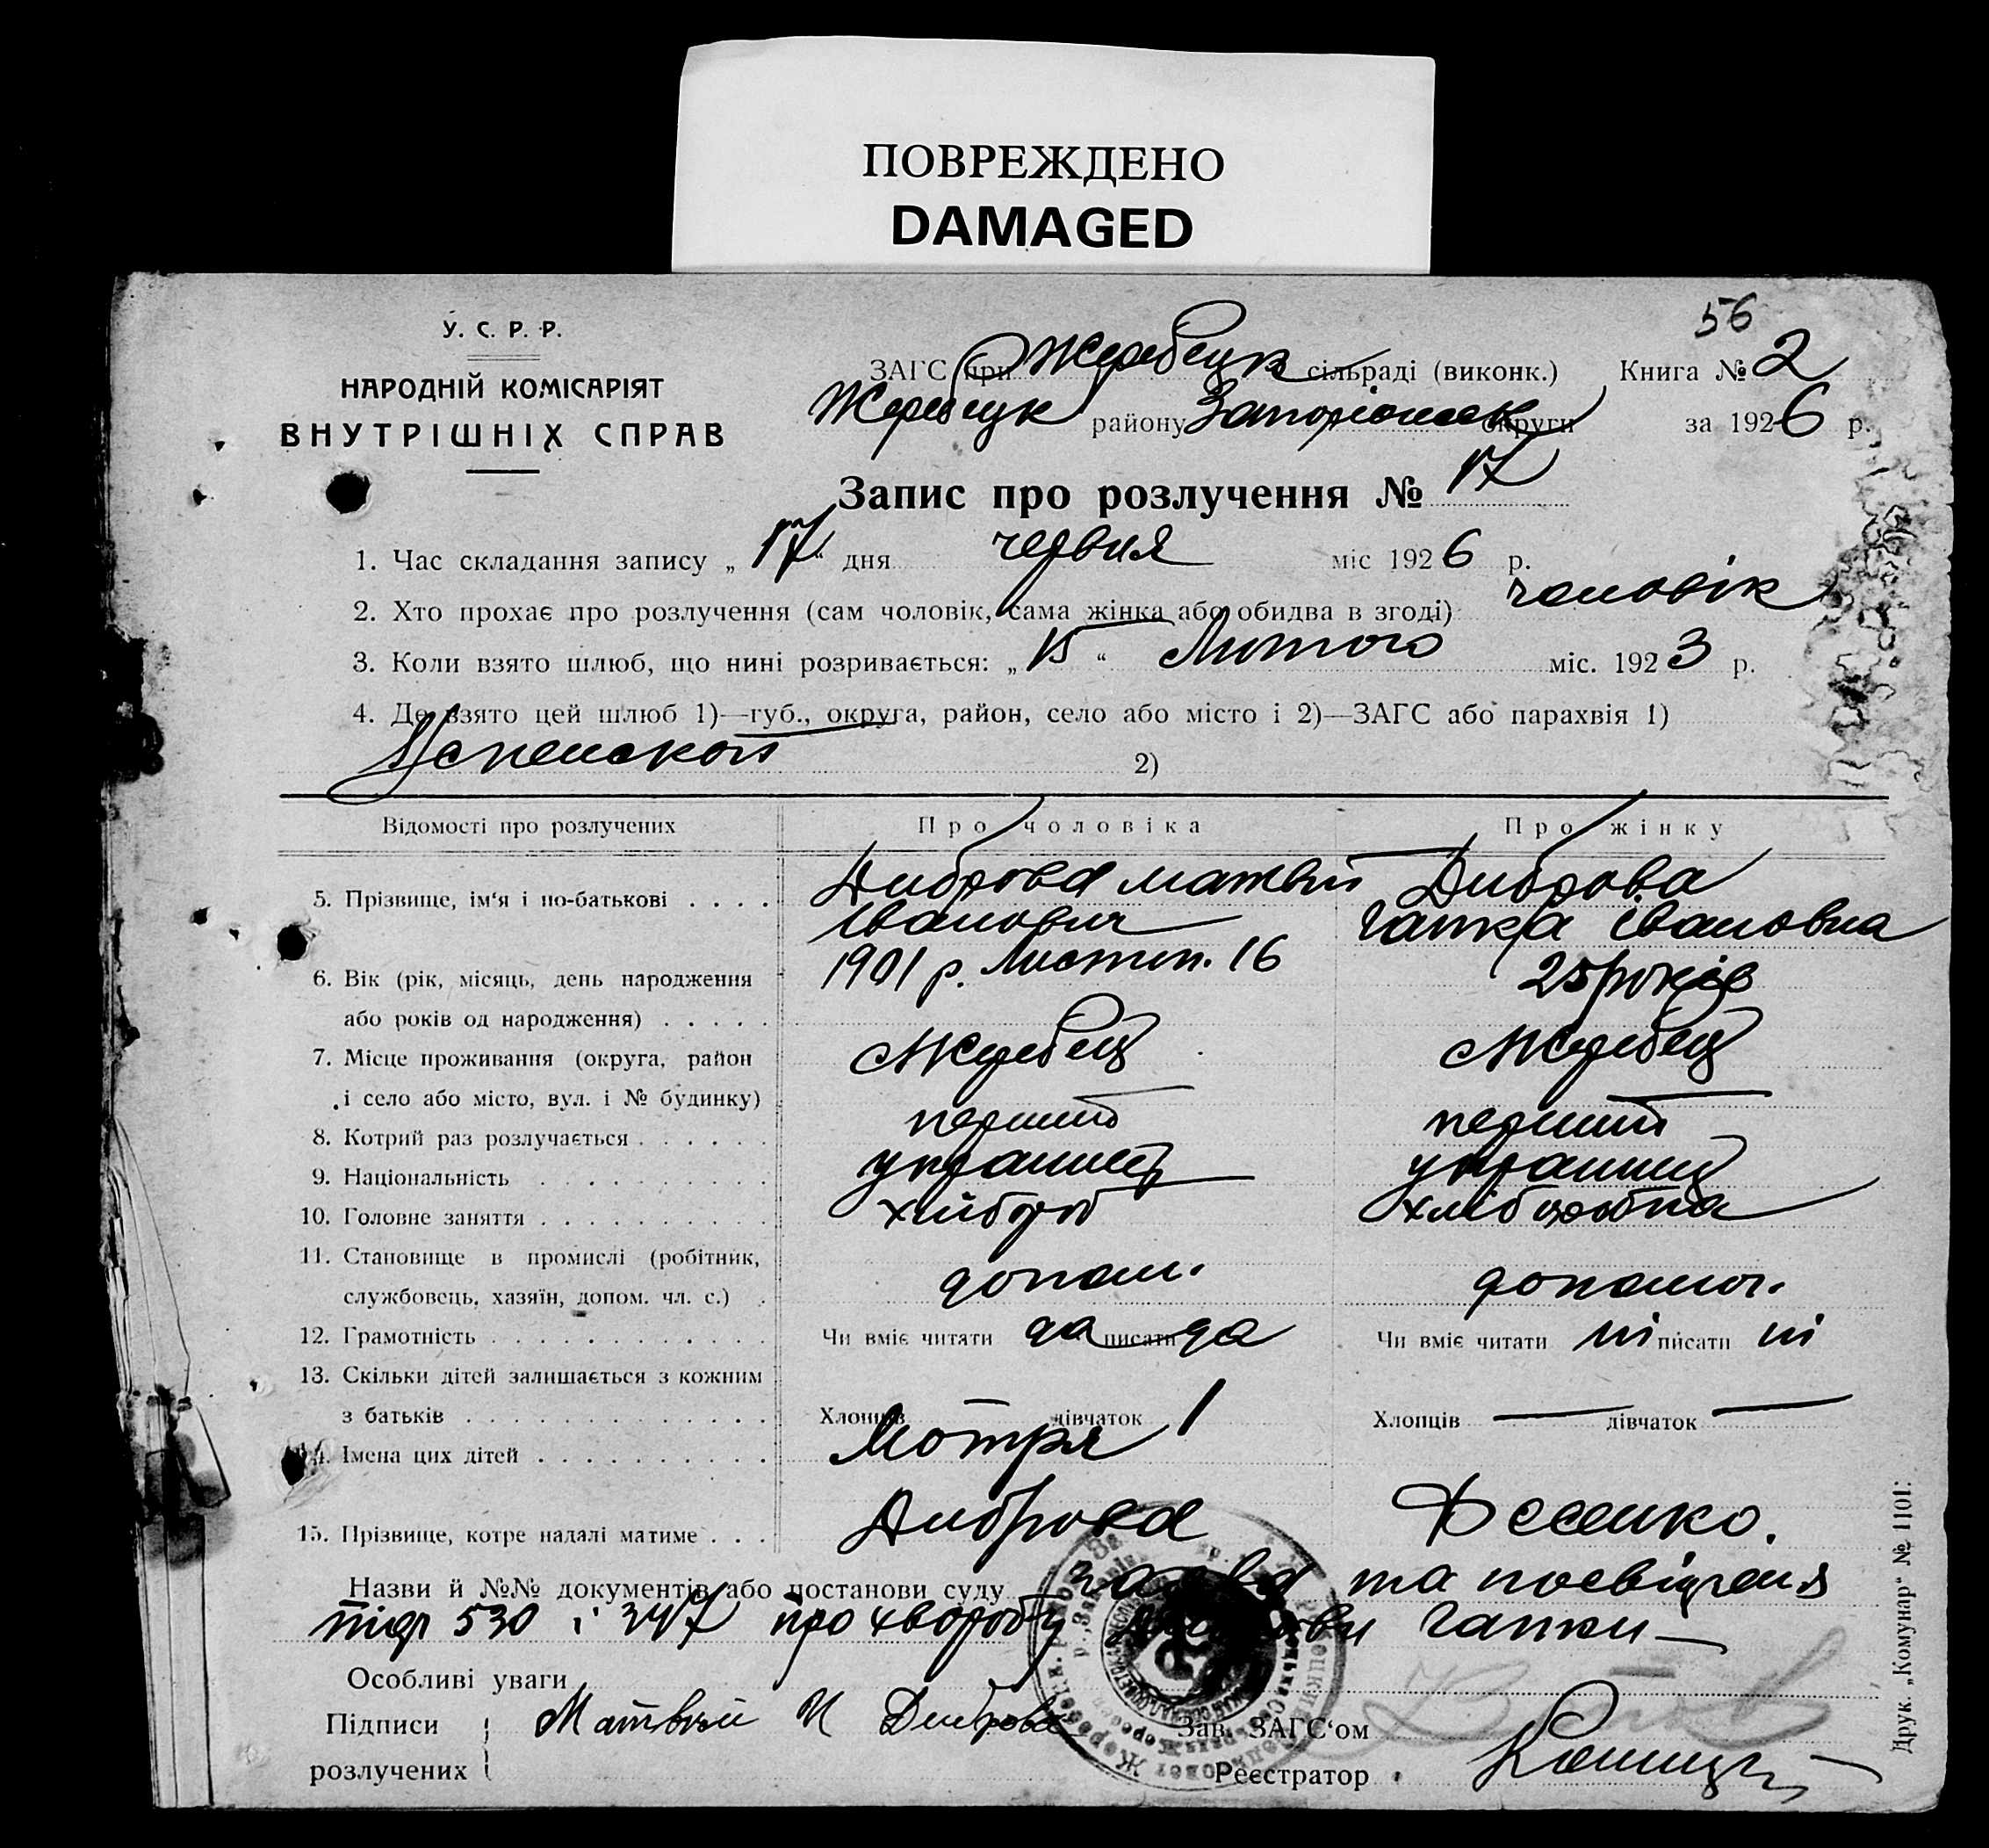 ПОВРЕЖДЕНО
DAMAGED
56
У. С. Р. Р.
НАРОДНІЙ КОМІСАРІЯТ
ВНУТРІШНІХ СПРАВ
ЗАГС при Жеребецк сільраді (виконк.) Книга № 2
Жеребецк району Запоріжськ округи за 1926 р.
Запис про розлучення № 17
1. Час складання запису „17“ дня червня міс 1926 р.
2. Хто прохає про розлучення (сам чоловік, сама жінка або обидва в згоді) чоловік
3. Коли взято шлюб, що нині розривається: „15“ Лютого міс. 1923 р.
4. Де взято цей шлюб 1)—губ., округа, район, село або місто і 2)—ЗАГС або парахвія 1)
Успенской 2)
Відомості про розлучених Про чоловіка Про жінку
5. Прізвище, ім‘я і по-батькові . . . . Диброва Матвій Диброва
Іванович Гапка Івановна
6. Вік (рік, місяць, день народження 1901 р. Листоп. 16 25 років
або років од народження) . . . . .
7. Місце проживання (округа, район Жеребець Жеребець
і село або місто, вул. і № будинку)
8. Котрий раз розлучається . . . . . . перший перший
9. Національність . . . . . . . . . . украинец украинц
10. Головне заняття . . . . . . . . . . хлібороб хліборобка
11. Становище в промислі (робітник,
службовець, хазяїн, допом. чл. с.) . допом. допомог.
12. Грамотність . . . . . . . . . . . . Чи вміє читати да писати да Чи вміє читати ні писати ні
13. Скільки дітей залишається з кожним
з батьків . . . . . . . . . . . . . Хлопців — дівчаток 1 Хлопців — дівчаток —
14. Імена цих дітей . . . . . . . . . . Мотря
15. Прізвище, котре надалі матиме . . . Диброва Фесенко.
Назви й №№ документів або постанови суду та посвідченя
під 530 і 347 про хворобу Гапки —
Особливі уваги
Підписи Матвей И Диброва Зав. ЗАГС‘ом
розлучених Реєстратор
Друк. „Комунар“ № 1101.